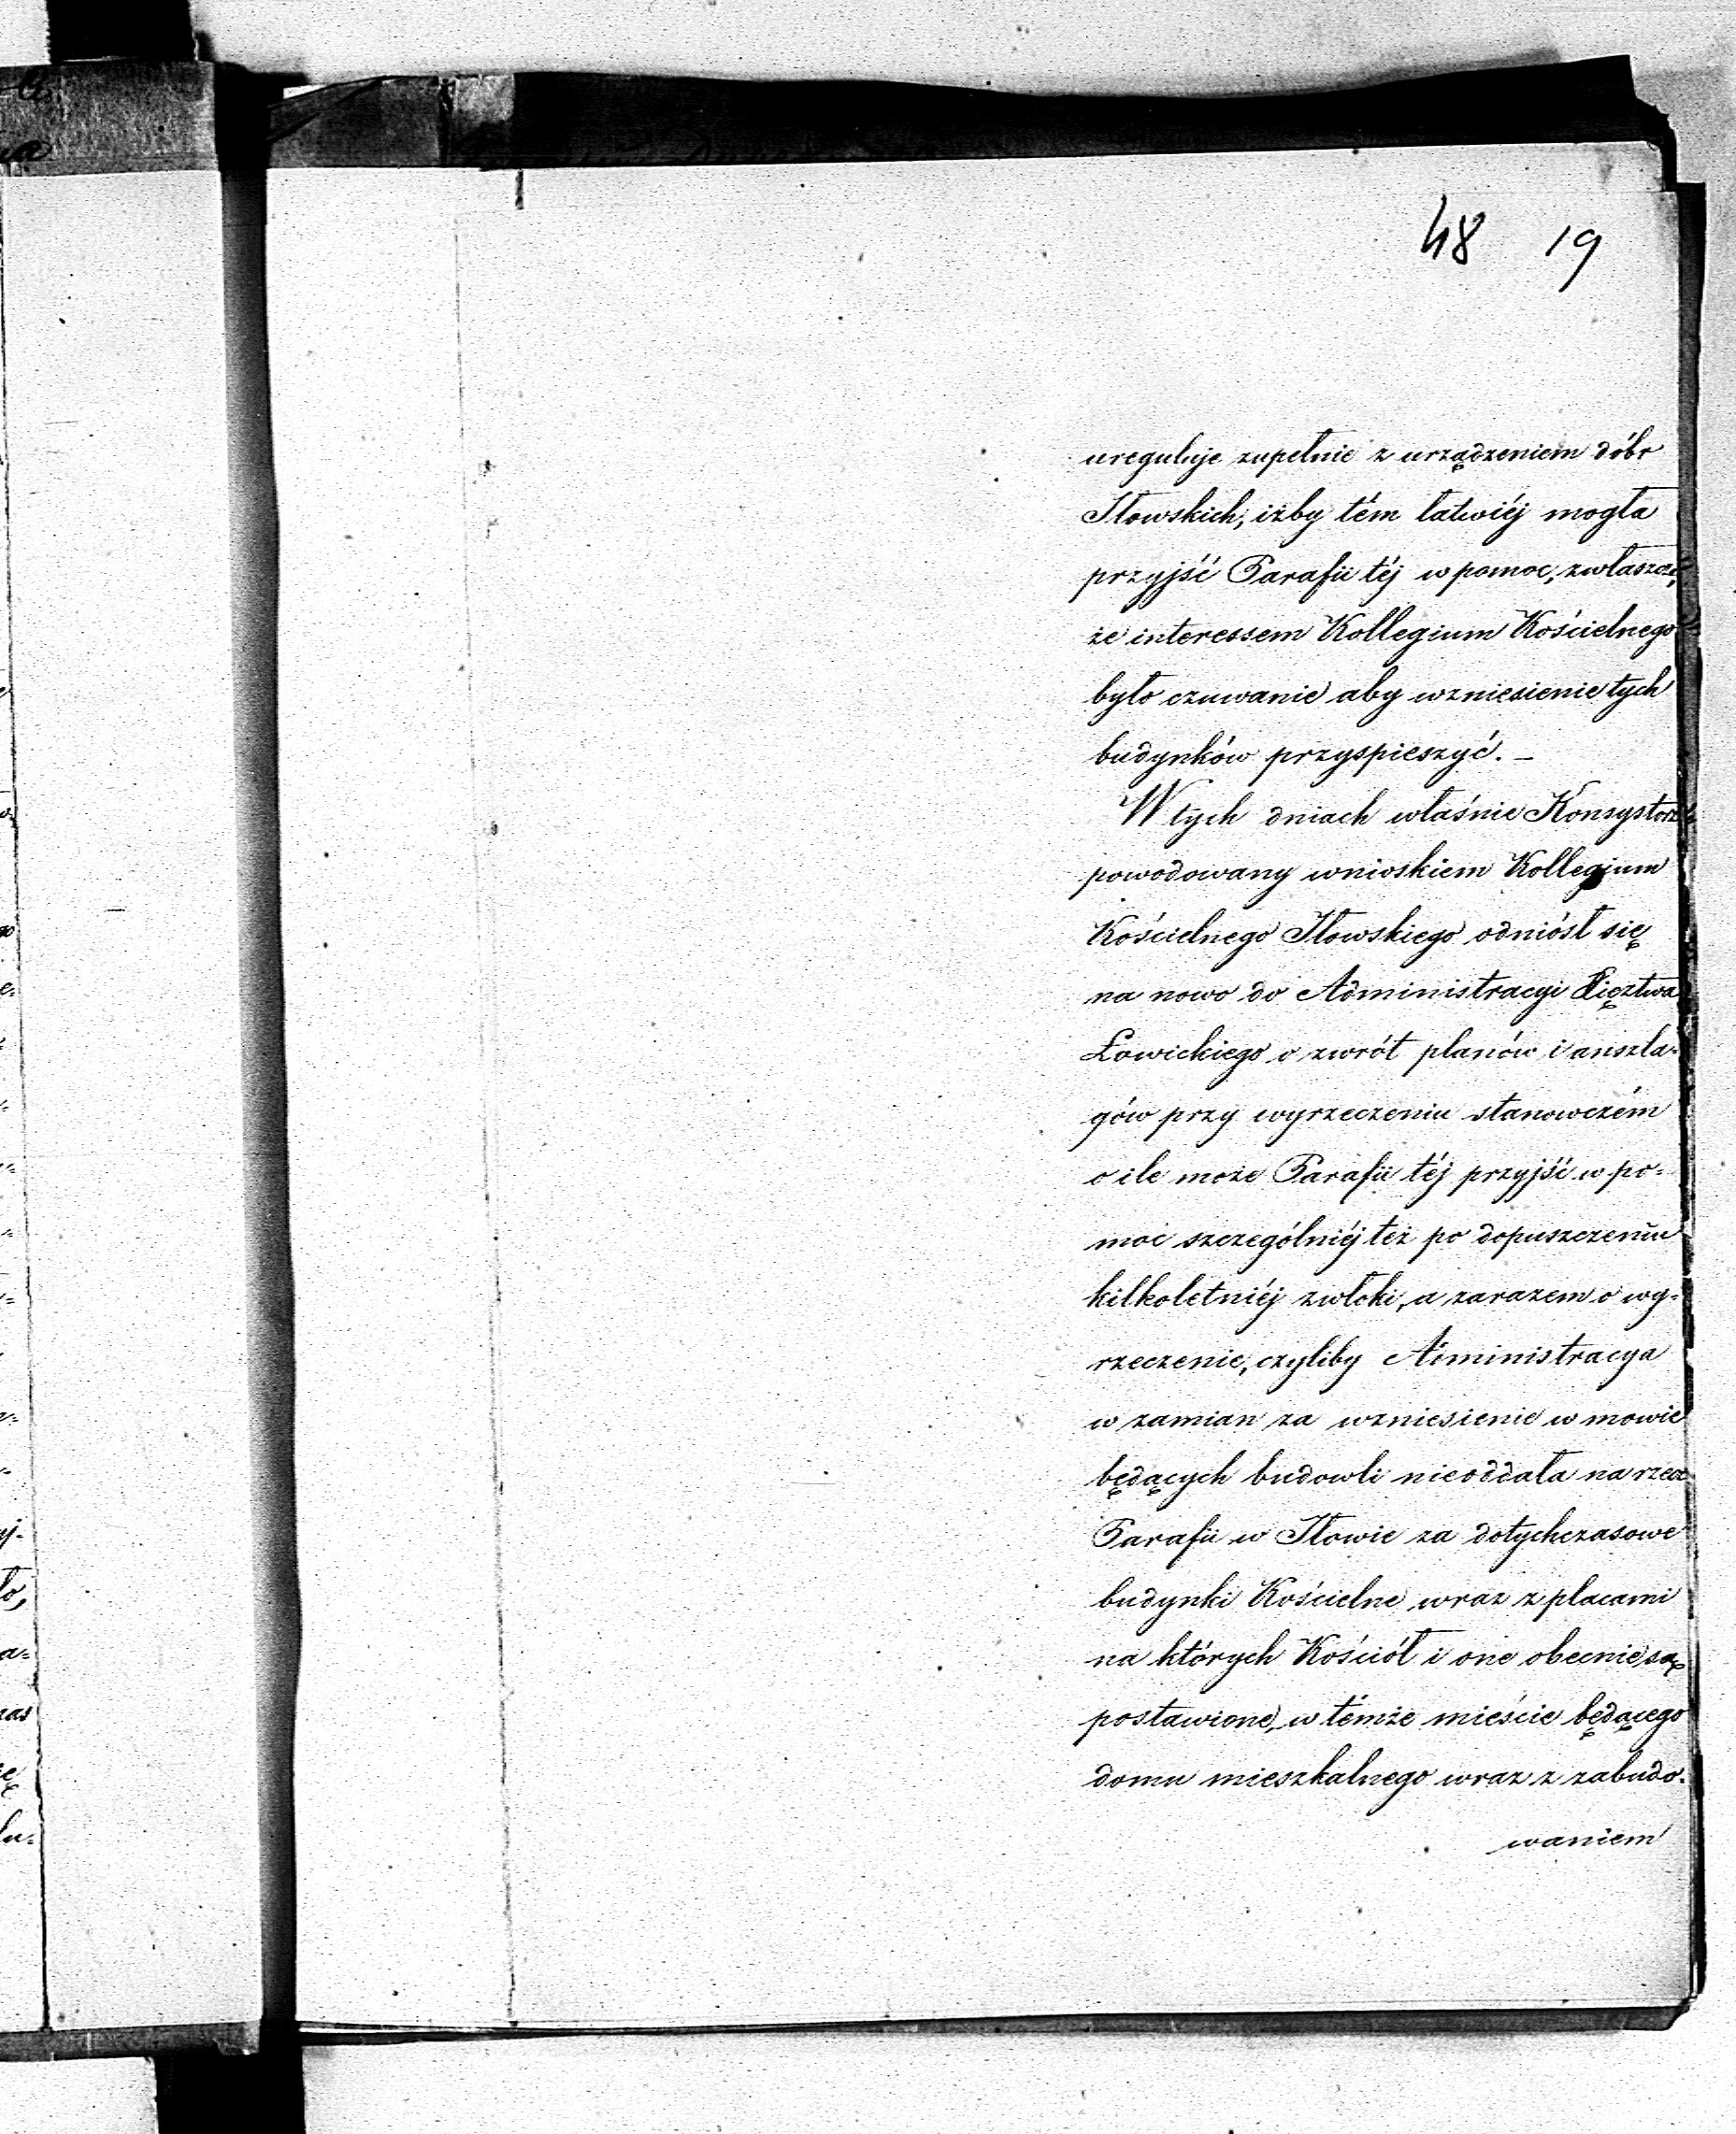 48 19
ureguluje zupełnie z urządzeniem dóbr
Iłowskich, iżby tém łatwiéj mogła
przyjść Parafii téj w pomoc, zwłaszcza,
że interessem Kollegium Kościelnego
było czuwanie aby wzniesienie tych
budynków przyspieszyć. –
W tych dniach właśnie Konsystorz
powodowany wnioskiem Kollegium
Kościelnego Iłowskiego odniósł się
na nowo do Administracyi Xięztwa
Łowickiego o zwrót planów i anszla-
gów przy wyrzeczeniu stanowczém
o ile może Parafii téj przyjść w po-
moc szczególniéj też po dopuszczeniu
kilkoletniéj zwłoki, a zarazem o wy-
rzeczenie, czyliby Administracya
w zamian za wzniesienie w mowie
będących budowli nieoddała na rzecz
Parafii w Iłowie za dotychczasowe
budynki Kościelne wraz z placami
na których Kościół i one obecnie są
postawione, w témże mieście będącego
domu mieszkalnego wraz z zabudo-
waniem